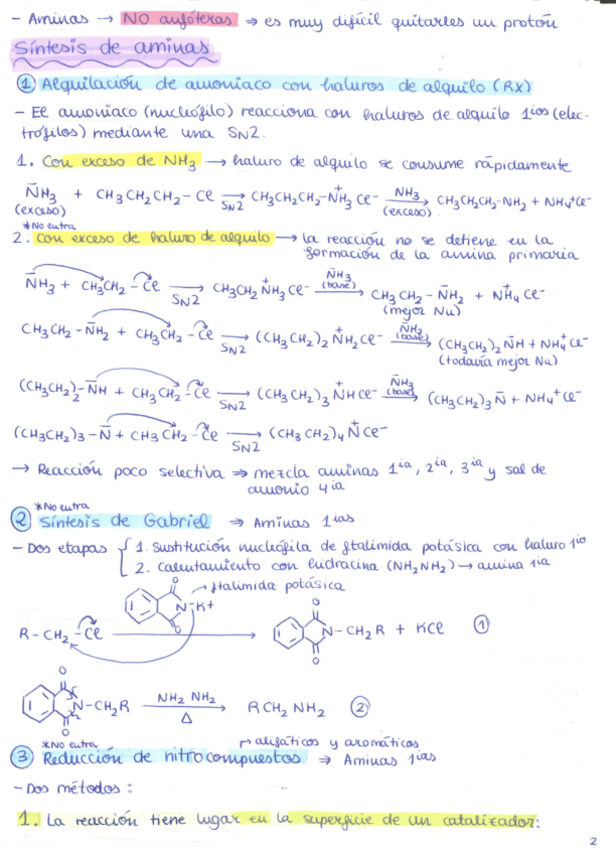 - Aminas → NO anfóteras ⇒ es muy difícil quitarles un protón
Síntesis de aminas
① Alquilación de amoniaco con haluros de alquilo (RX)
- El amoniaco (nucleófilo) reacciona con haluros de alquilo 1ios (elec-
trófilos) mediante una SN2.
1. Con exceso de NH3 → haluro de alquilo se consume rápidamente
NH3 + CH3CH2CH2-Cl →SN2 CH3CH2CH2-NH3+ Cl- →NH3 (exceso) CH3CH2CH2-NH2 + NH4+Cl-
(exceso)
*No entra
2. Con exceso de haluro de alquilo → la reacción no se detiene en la
formación de la amina primaria
NH3 + CH3CH2-Cl →SN2 CH3CH2NH3+Cl- →NH3 (base) CH3CH2-NH2 + NH4+Cl-
(mejor Nu)
CH3CH2-NH2 + CH3CH2-Cl →SN2 (CH3CH2)2NH2+Cl- →NH3 (base) (CH3CH2)2NH + NH4+Cl-
(todavía mejor Nu)
(CH3CH2)2-NH + CH3CH2-Cl →SN2 (CH3CH2)3NH+Cl- →NH3 (base) (CH3CH2)3N + NH4+Cl-
(CH3CH2)3-N + CH3CH2-Cl →SN2 (CH3CH2)4N+Cl-
→ Reacción poco selectiva ⇒ mezcla aminas 1ia, 2ia, 3ia y sal de
amonio 4ia
*No entra
② Síntesis de Gabriel ⇒ Aminas 1ias
- Dos etapas { 1. Sustitución nucleófila de ftalimida potásica con haluro 1io
2. Calentamiento con hidracina (NH2NH2) → amina 1ia
O N-K+ O → ftalimida potásica
R-CH2-Cl → O N-CH2R O + KCl ①
O N-CH2R O →NH2NH2 Δ RCH2NH2 ②
*No entra → alifáticos y aromáticos
③ Reducción de nitrocompuestos ⇒ Aminas 1ias
- Dos métodos:
1. La reacción tiene lugar en la superficie de un catalizador:
2